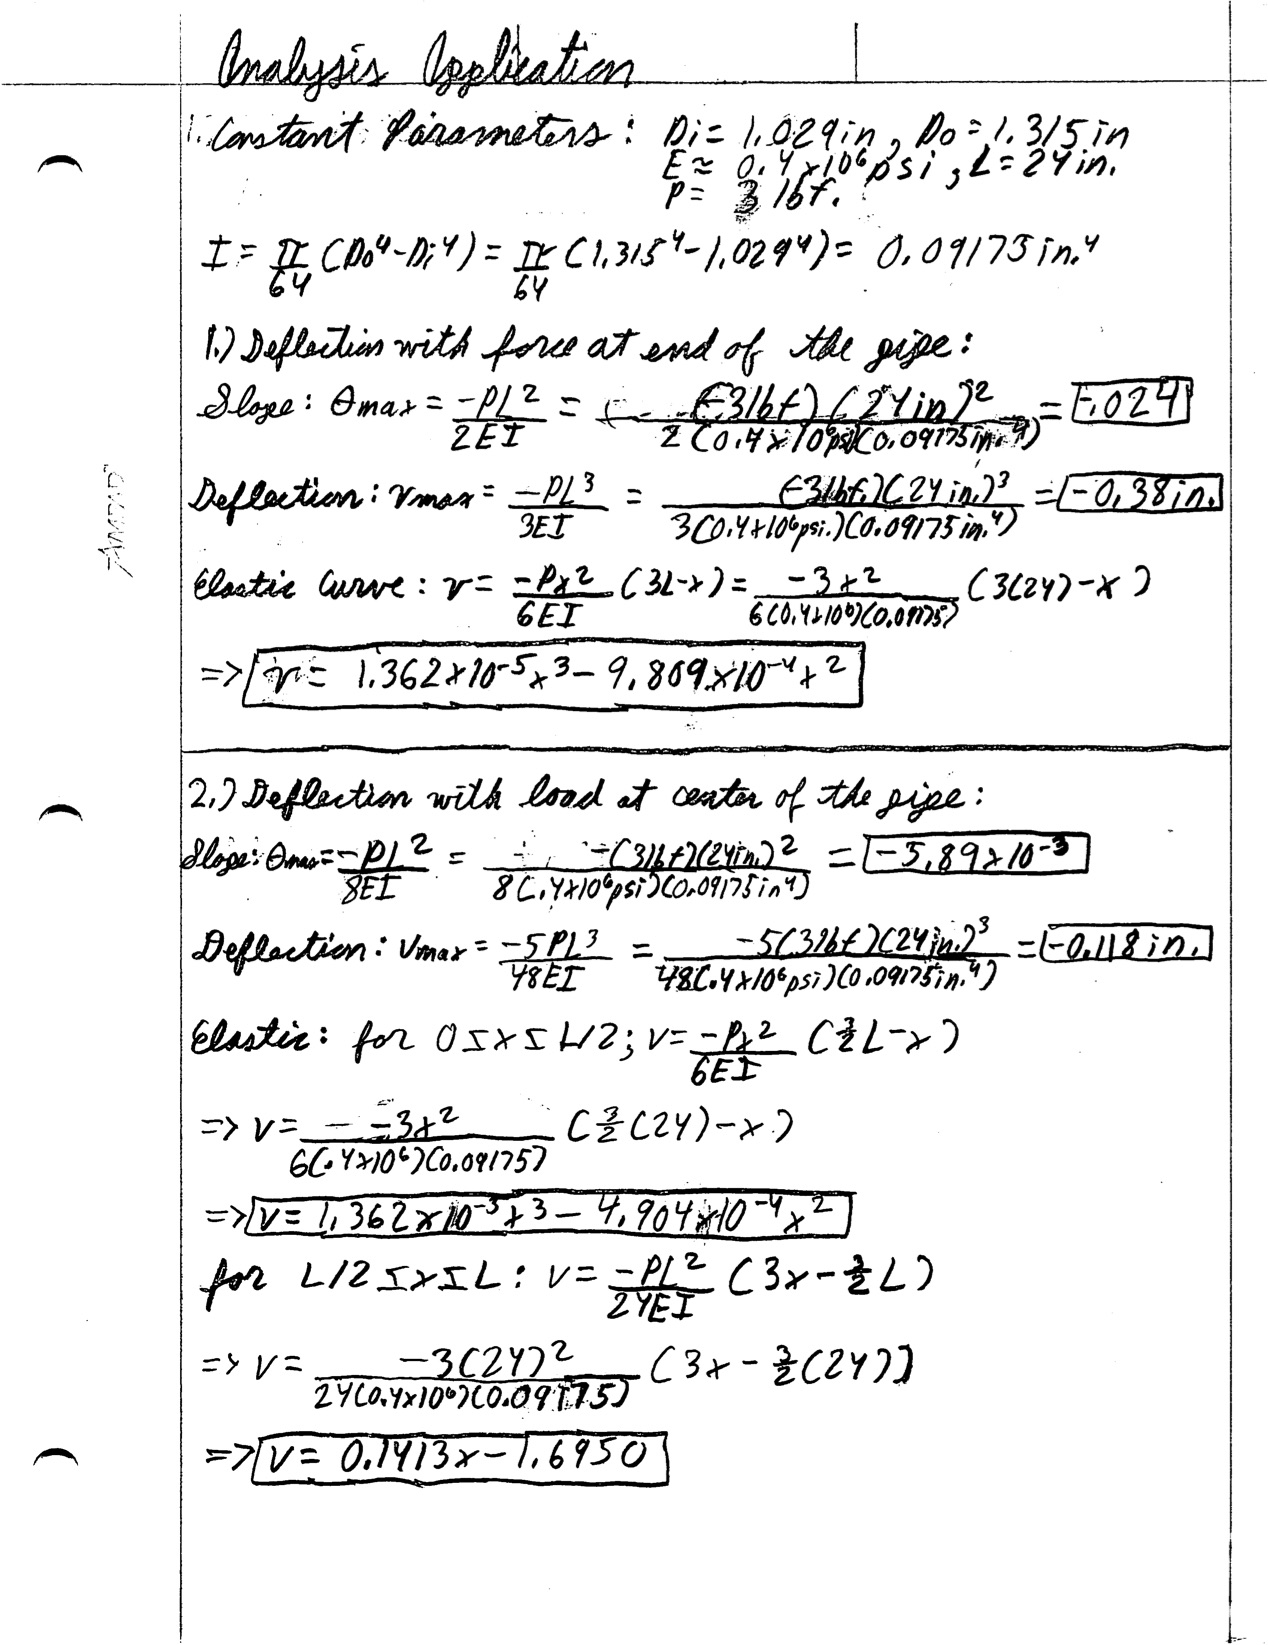 Analysis Application
1. Constant Parameters: Di = 1.029in, Do = 1.315in
E ≈ 0.4×10⁶psi, L = 24in.
P = 3 lbf.
I = π/64 (Do⁴-Di⁴) = π/64 (1.315⁴-1.029⁴) = 0.09175in.⁴
1.) Deflection with force at end of the pipe:
Slope: θmax = -PL²/2EI = (-3lbf)(24in)²/2(0.4×10⁶psi)(0.09175in.⁴) = -.024
Deflection: vmax = -PL³/3EI = (-3lbf.)(24in.)³/3(0.4×10⁶psi.)(0.09175in.⁴) = -0.38in.
Elastic Curve: v = -Px²/6EI (3L-x) = -3x²/6(0.4×10⁶)(0.09175) (3(24)-x)
=> v = 1.362×10⁻⁵x³ - 9.809×10⁻⁴x²
2.) Deflection with load at center of the pipe:
Slope: θmax = -PL²/8EI = -(3lbf)(24in.)²/8(.4×10⁶psi)(0.09175in⁴) = -5.89×10⁻³
Deflection: vmax = -5PL³/48EI = -5(3lbf)(24in.)³/48(.4×10⁶psi)(0.09175in.⁴) = -0.118in.
Elastic: for 0≤x≤L/2; v = -Px²/6EI (3/2L-x)
=> v = -3x²/6(.4×10⁶)(0.09175) (3/2(24)-x)
=> v = 1.362×10⁻⁵x³ - 4.904×10⁻⁴x²
for L/2≤x≤L: v = -PL²/24EI (3x-3/2L)
=> v = -3(24)²/24(0.4×10⁶)(0.09175) (3x-3/2(24))
=> v = 0.1413x - 1.6950